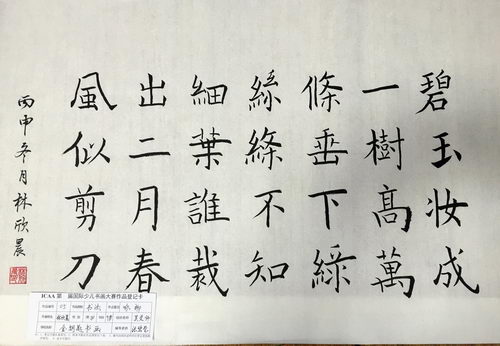 碧玉妆成
一樹髙萬
條垂下綠
絲絛不知
細葉誰裁
出二月春
風似剪刀
丙申冬月林欣晨
ICAA 第 届国际少儿书画大赛作品登记卡
书法 咏柳